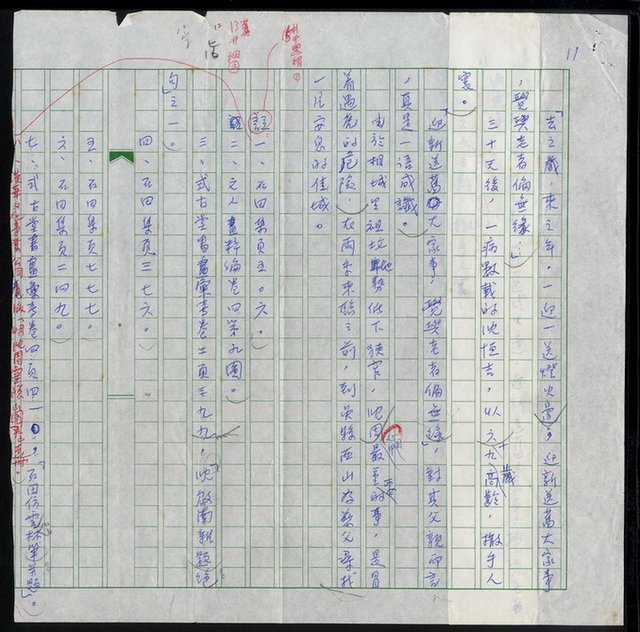 11
「去之歲,來之年,一迎一送燈火邊;迎新送舊大家事
,覺與老者偏無緣…」
三十天後,一病數載的沈恒吉,以六九高齡,撒手人
寰。
「迎新送舊大家事,覺與老者偏無緣」,對其父親而言
,真是一語成讖。
由於相城里祖坟地勢低下狹窄,沈周最重要的事,是冒
着遇虎的危險,在兩年來臨之前,到吳縣西山為葬父尋找
一片安息的佳城。
註一、石田集頁五〇六。
二、文人畫粹編卷四第九圖。
三、式古堂書畫彙考卷二頁三九九,「沈啟南新題絕
句」之一。
四、石田集頁三七六。
五、石田集頁七七七。
六、石田集頁二四九。
七、式古堂書畫彙考卷四頁四一一,「石田仿雲林筆并題」。